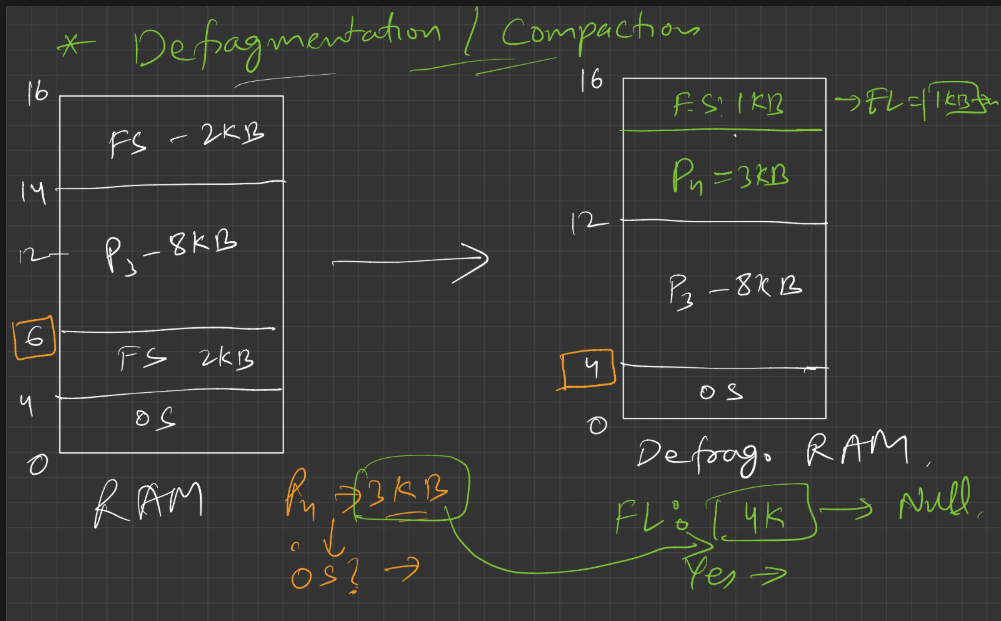 * Defragmentation / Compaction
16
FS - 2KB
14
12
P3 - 8KB
6
FS 2KB
4
OS
0
RAM
16
F.S: 1KB → FL = 1KB
P4 = 3KB
12
P3 - 8KB
4
OS
0
Defrag. RAM.
P4 → 3KB
OS? →
FL: 4K → Null.
Yes →